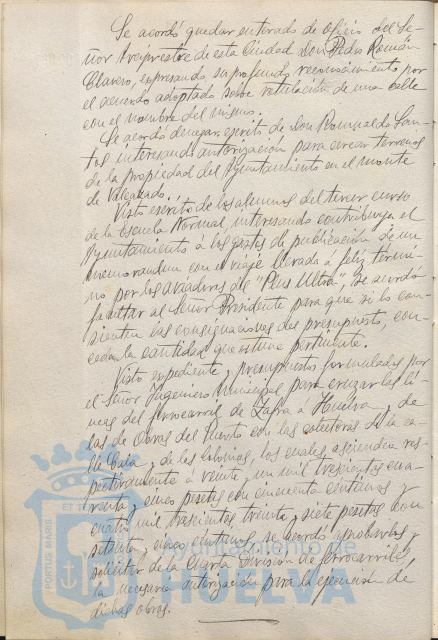 Se acordó quedar enterado de oficio del Se-
ñor Arcipreste de esta Ciudad Don Pedro Román
Clavero, expresando su profundo reconocimiento por
el acuerdo adoptado sobre rotulación de una calle
con el nombre del mismo.
Se acordó denegar escrito de Don Romualdo San-
tos interesando autorización para cercar terrenos
de la propiedad del Ayuntamiento en el monte
de
Visto escrito de los alumnos del tercer curso
de la Escuela Normal, interesando contribuya el
Ayuntamiento á los gastos de publicación de un
memorandum con el viaje llevado á feliz térmi-
no por los aviadores del "Plus Ultra", se acordó
facultar al Señor Presidente para que si lo con-
sienten las consignaciones del presupuesto, con-
ceda la cantidad que estime pertinente.
Visto expediente y presupuestos formulados por
el Señor Ingeniero Municipal para cruzar las lí-
neas del ferrocarril de Zafra á Huelva y de
las de Obras del Puerto con las colectoras de la ca-
lle Cala y de las Colonias, los cuales ascienden res-
pectivamente á veinte y un mil trescientas cua-
renta y cinco pesetas con cincuenta centimos y
cuatro mil trescientas treinta y siete pesetas con
setenta y cinco centimos, se acordó aprobarlos y
solicitar de la Cuarta División de ferrocarriles,
la necesaria autorización para la ejecución de
dichas obras.
PORTUS MARIS
ET
Ayuntamiento de
HUELVA